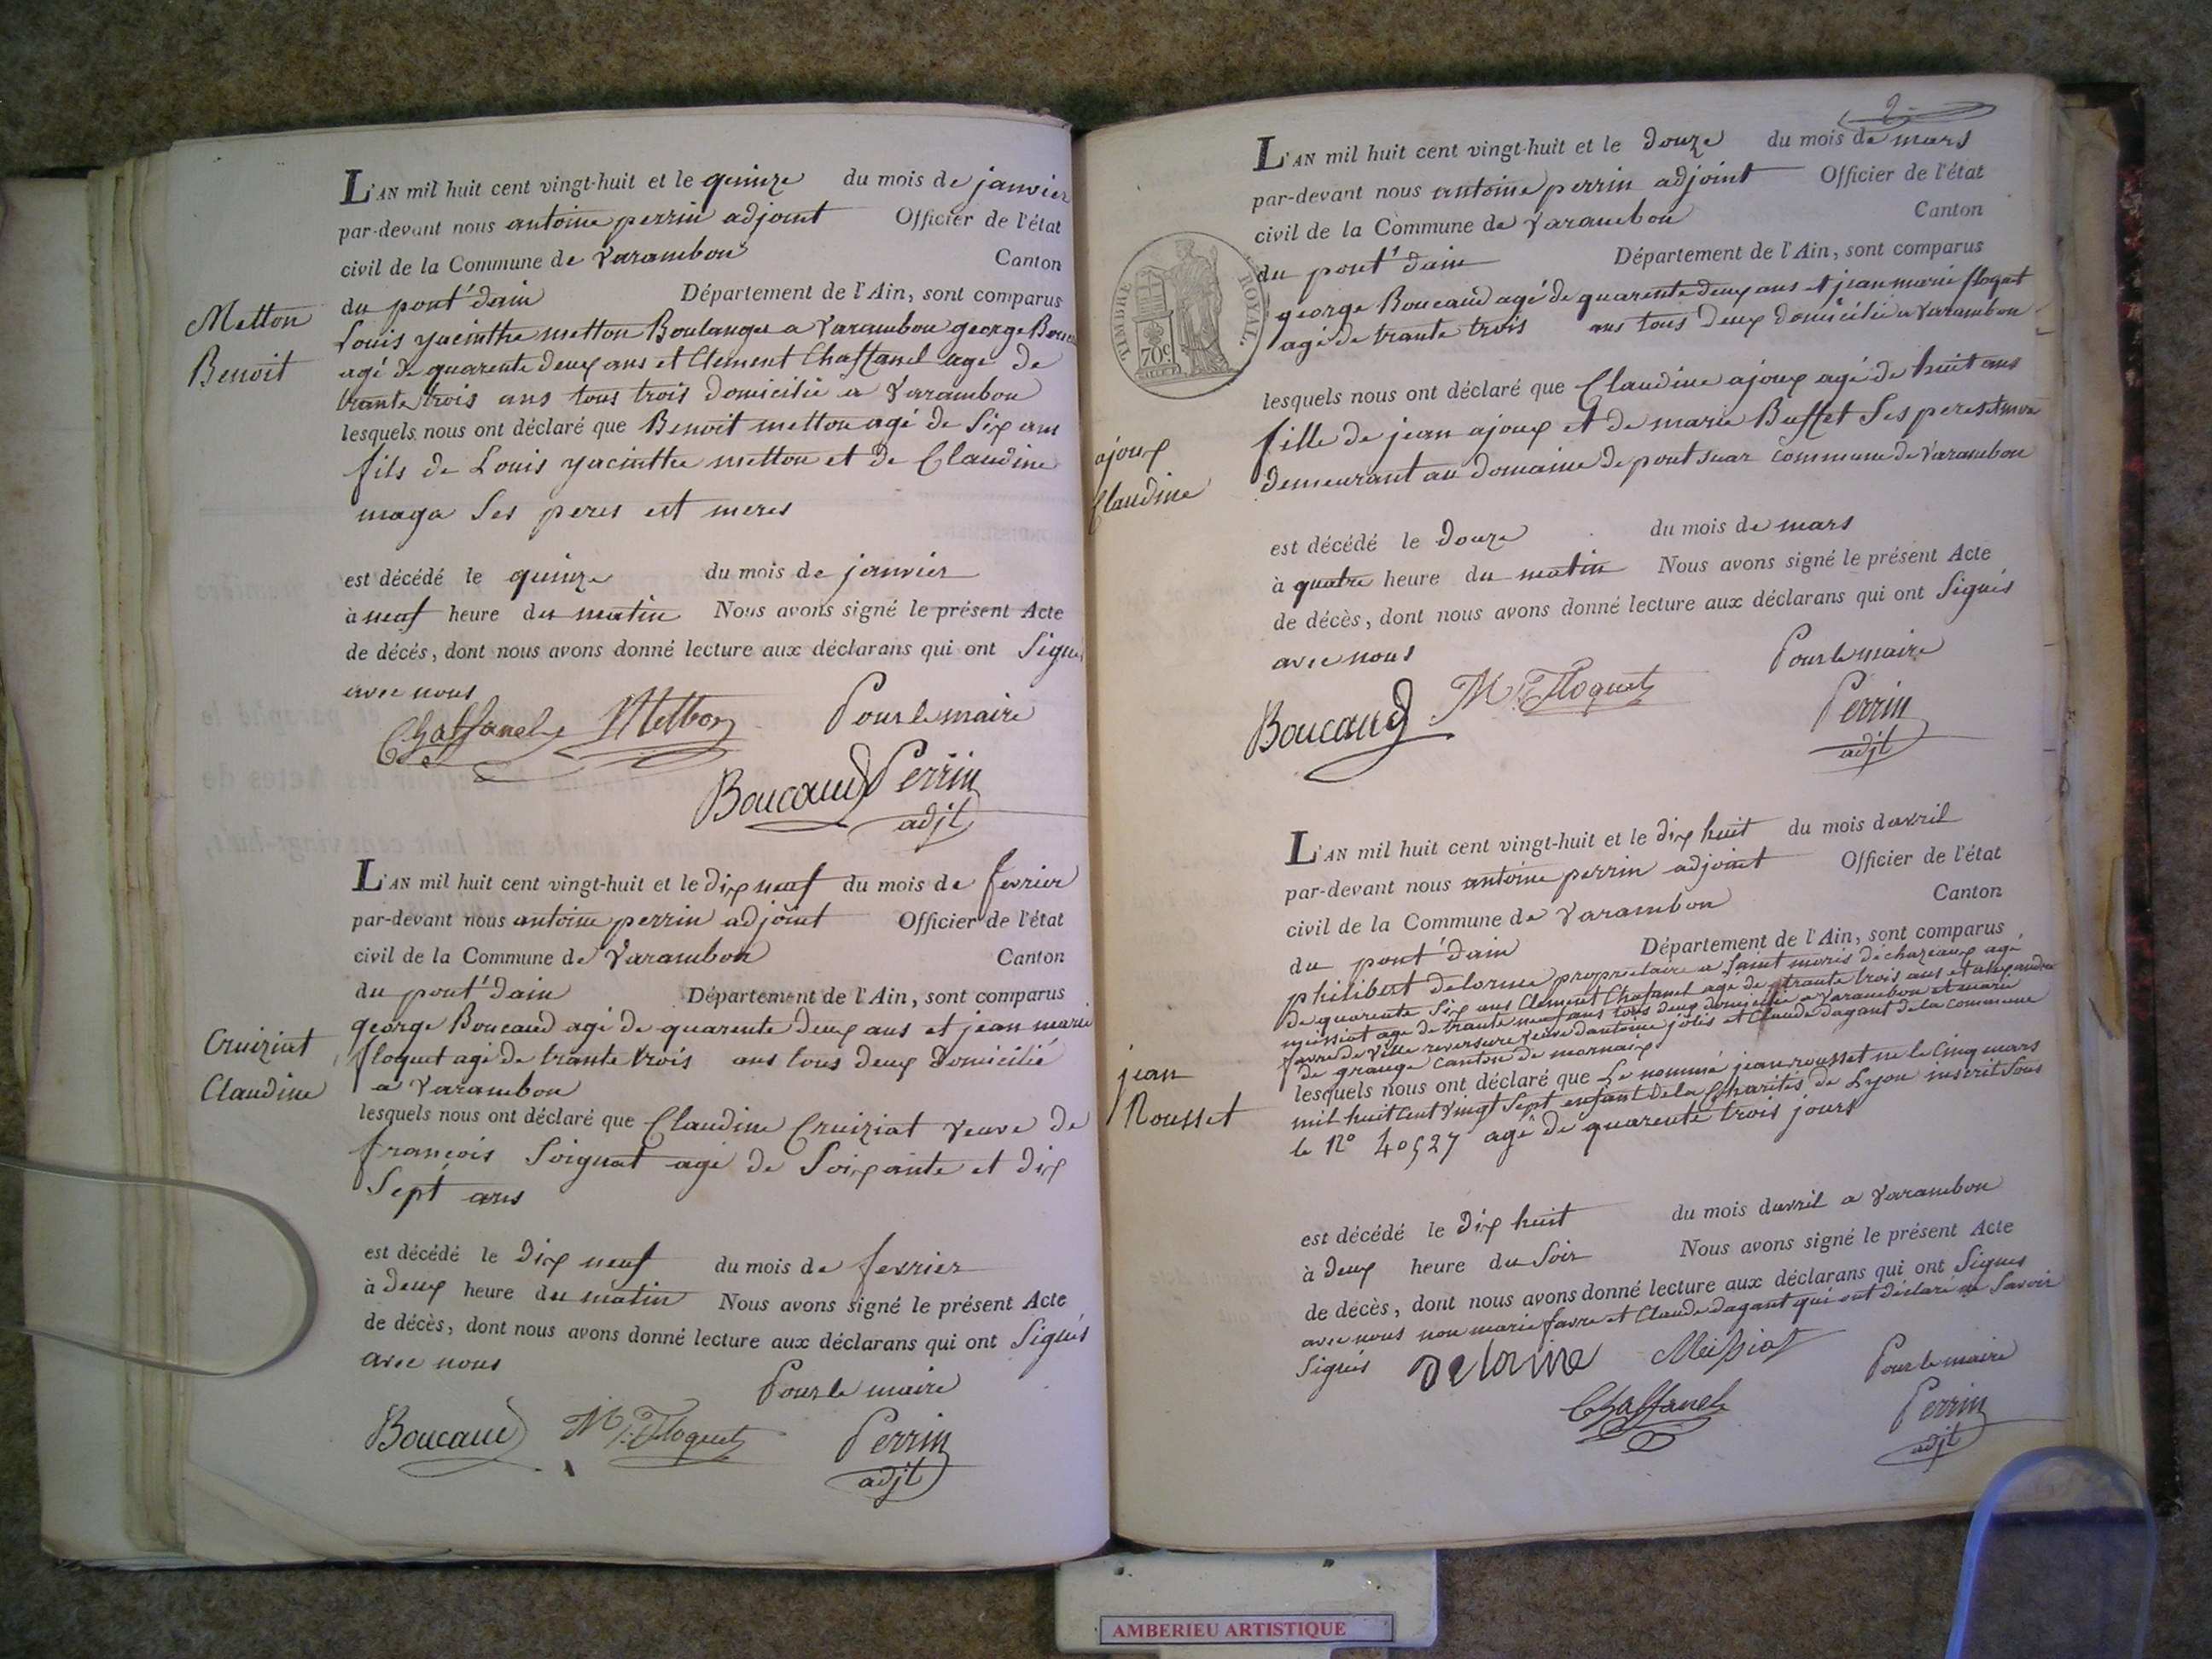 L'AN mil huit cent vingt-huit et le quinze du mois de janvier
par-devant nous antoine perrin adjoint Officier de l'état
civil de la Commune de Varambon Canton
du pont d'ain Département de l'Ain, sont comparus
Metton
Benoit
Louis yacinthe metton Boulanger a Varambon george
agé de quarente deux ans et Clement Chaffanel age de
trante trois ans tous trois domicilié a Varambon
lesquels nous ont déclaré que Benoit metton agé de Six ans
fils de Louis yacinthe metton et de Claudine
maga Ses peres est meres
est décédé le quinze du mois de janvier
à neuf heure du matin Nous avons signé le présent Acte
de décés, dont nous avons donné lecture aux déclarans qui ont Signés
avec nous
Chaffanel Metton Pour le maire
Boucaud Perrin
adjt
L'AN mil huit cent vingt-huit et le dix neuf du mois de fevrier
par-devant nous antoine perrin adjoint Officier de l'état
civil de la Commune de Varambon Canton
du pont d'ain Département de l'Ain, sont comparus
Cruiziat
Claudine
george Boucaud agé de quarente deux ans et jean marie
floquet agé de trante trois ans tous deux domicilié
a Varambon
lesquels nous ont déclaré que Claudine Cruiziat veuve de
françois Soignat agé de Soixante et dix
Sept ans
est décédé le dix neuf du mois de fevrier
à deux heure du matin Nous avons signé le présent Acte
de décès, dont nous avons donné lecture aux déclarans qui ont Signés
avec nous
Pour le maire
Boucaud Floquet Perrin
adjt
2
L'AN mil huit cent vingt-huit et le douze du mois de mars
par-devant nous antoine perrin adjoint Officier de l'état
civil de la Commune de Varambon Canton
du pont d'ain Département de l'Ain, sont comparus
TIMBRE ROYAL
70c.
george Boucaud agé de quarente deux ans et jean marie floquet
agé de trante trois ans tous deux domicilié a Varambon
lesquels nous ont déclaré que Claudine ajoux agé de huit ans
ajoux
Claudine
fille de jean ajoux et de marie Buffet Ses peres et
demeurant au domaine de pont suar commune de Varambon
est décédé le douze du mois de mars
à quatre heure du matin Nous avons signé le présent Acte
de décès, dont nous avons donné lecture aux déclarans qui ont Signés
avec nous Pour le maire
Boucaud Floquet Perrin
adjt
L'AN mil huit cent vingt-huit et le dix huit du mois davril
par-devant nous antoine perrin adjoint Officier de l'état
civil de la Commune de Varambon Canton
du pont d'ain Département de l'Ain, sont comparus
philibert delorme proprietaire a Saint moris déchazeaux age
de quarente Six ans Clement Chafanel age de trante trois ans et alexandre
age de trante neuf ans tous deux domicilié a Varambon et marie
favre de Ville reversure veuve dantoine jolis et Claude dagant de la commune
de grange canton de
jean
Rousset
lesquels nous ont déclaré que Le nommé jean rousset ne le cinq mars
mil huit cent vingt Sept enfant De la Charités de Lyon inscrit Sous
le No 40527 agé de quarente trois jours
est décédé le dix huit du mois davril a Varambon
à deux heure du Soir Nous avons signé le présent Acte
de décès, dont nous avons donné lecture aux déclarans qui ont Signés
avec nous non marie favre et Claude dagant qui ont déclaré ne Savoir
Signés Delorme Meissiat Pour le maire
Chaffanel Perrin
adjt
AMBERIEU ARTISTIQUE